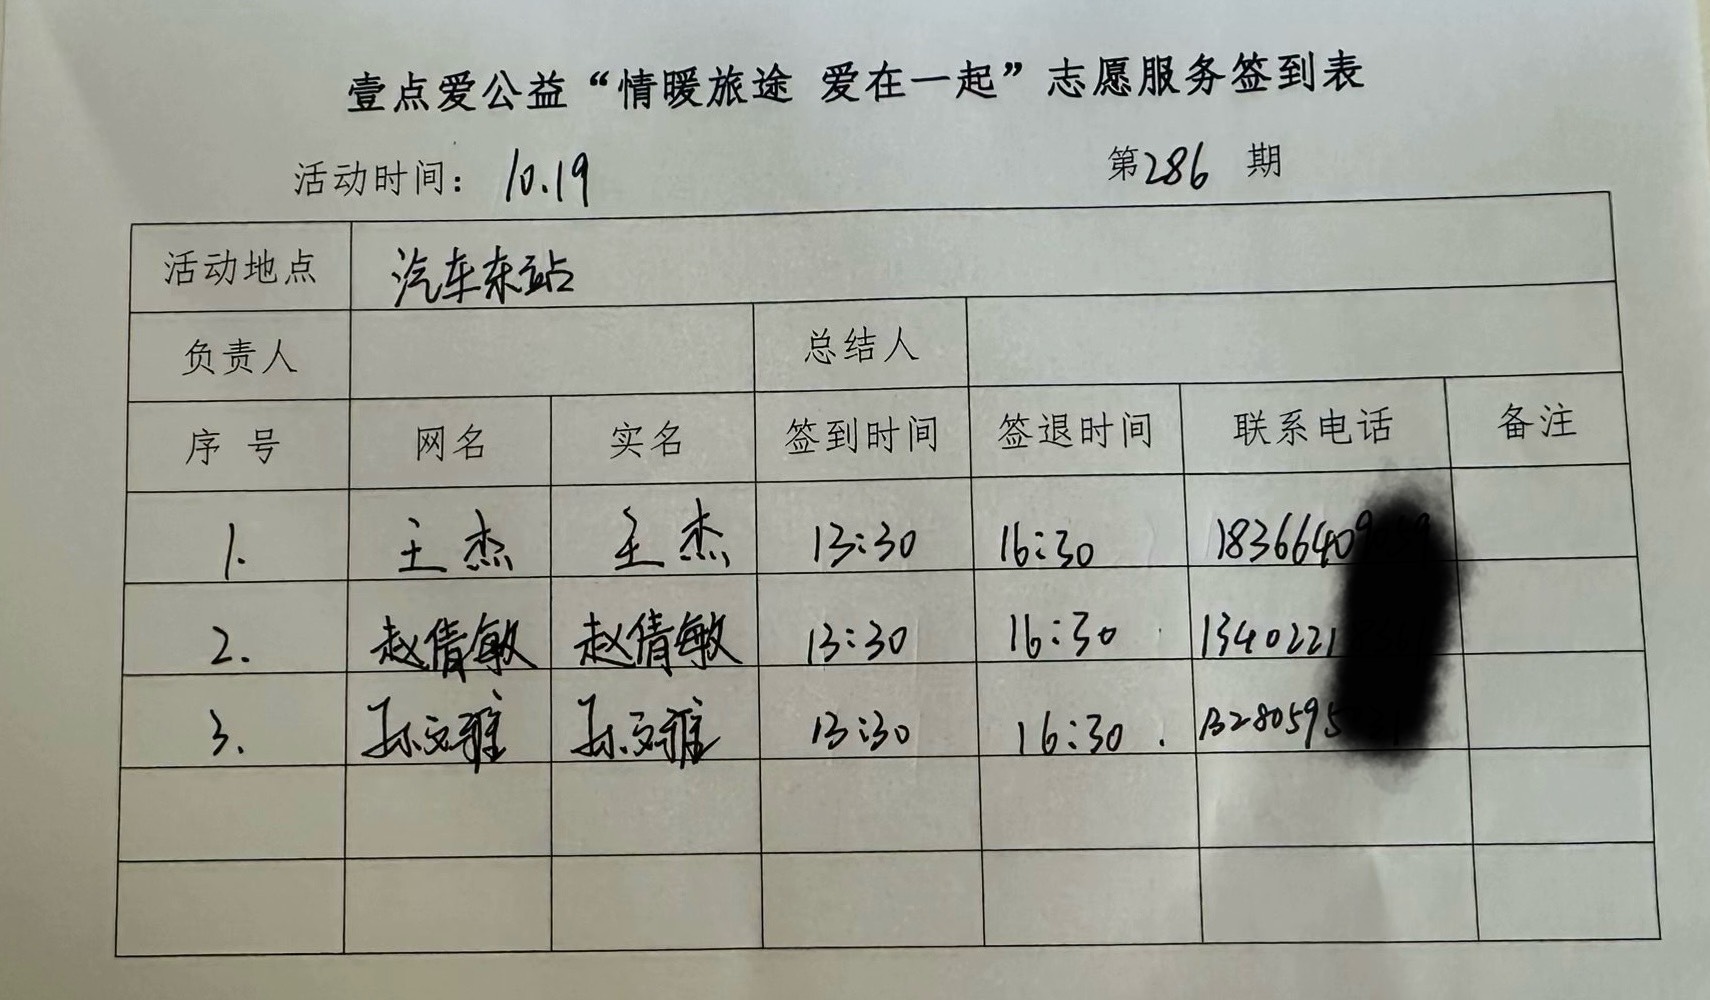 壹点爱公益“情暖旅途 爱在一起”志愿服务签到表
活动时间：10.19 第286期
活动地点 汽车东站
负责人 总结人
序号 网名 实名 签到时间 签退时间 联系电话 备注
1. 王杰 王杰 13:30 16:30 18366409
2. 赵倩敏 赵倩敏 13:30 16:30 1340221
3. 孙文雅 孙文雅 13:30 16:30. 13280595